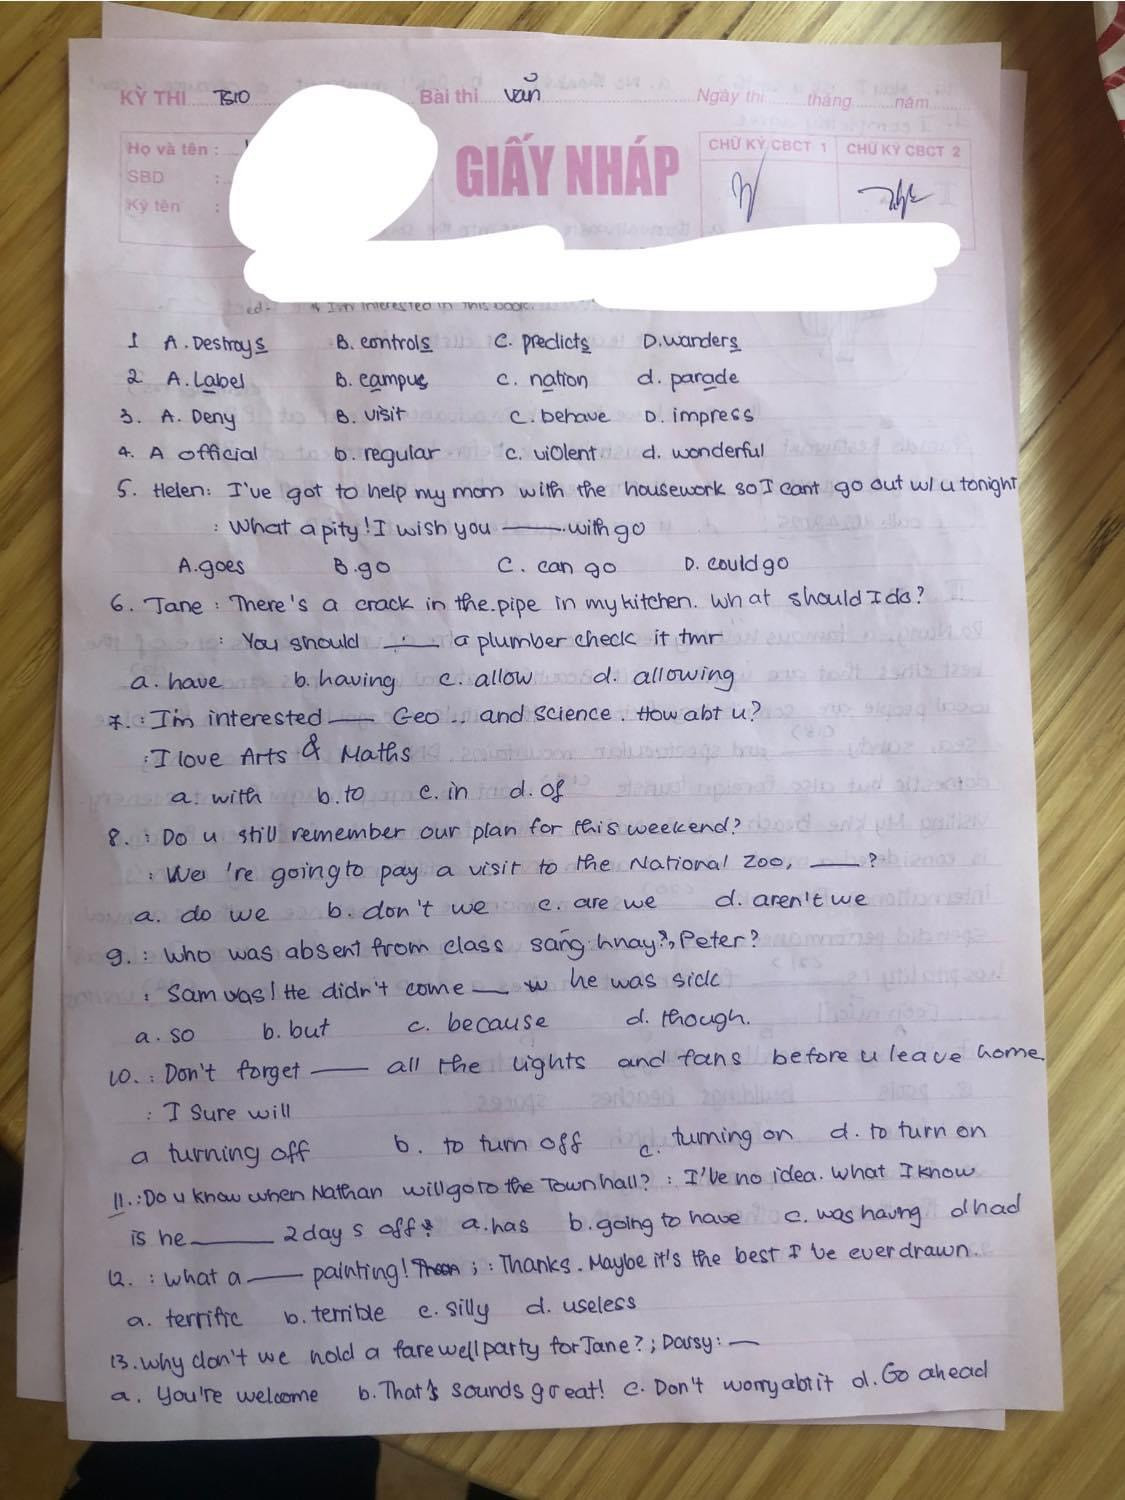 KỲ THI TS10 Bài thi văn Ngày thi tháng năm
Họ và tên :
SBD :
Ký tên :
GIẤY NHÁP
CHỮ KÝ CBCT 1 CHỮ KÝ CBCT 2
I'm interested in this book.
1 A. Destroys B. controls C. predicts D. wanders
2 A. Label B. campus c. nation d. parade
3. A. Deny B. visit C. behave D. impress
4. A official b. regular c. violent d. wonderful
5. Helen: I've got to help my mom with the housework so I cant go out w/ u tonight
: What a pity! I wish you ___ with go
A. goes B. go C. can go D. could go
6. Jane : There's a crack in the pipe in my kitchen. What should I do?
: You should ___ a plumber check it tmr
a. have b. having c. allow d. allowing
7. : I'm interested ___ Geo .. and science. How abt u?
: I love Arts & Maths
a. with b. to c. in d. of
8. : Do u still remember our plan for this weekend?
: We 're going to pay a visit to the National Zoo, ___ ?
a. do we b. don't we c. are we d. aren't we
9. : Who was absent from class sáng hnay?, Peter?
: Sam was! He didn't come ___ he was sick
a. so b. but c. because d. though.
10. : Don't forget ___ all the lights and fans before u leave home.
: I sure will
a turning off b. to turn off c. turning on d. to turn on
11. : Do u know when Nathan will go to the Town hall? : I've no idea. What I know
is he ___ 2 days off? a. has b. going to have c. was having d had
12. : What a ___ painting! ; : Thanks. Maybe it's the best I 've ever drawn.
a. terrific b. terrible c. silly d. useless
13. Why don't we hold a farewell party for Jane? ; Daisy: ___
a. You're welcome b. That's sounds great! c. Don't worry abt it d. Go ahead